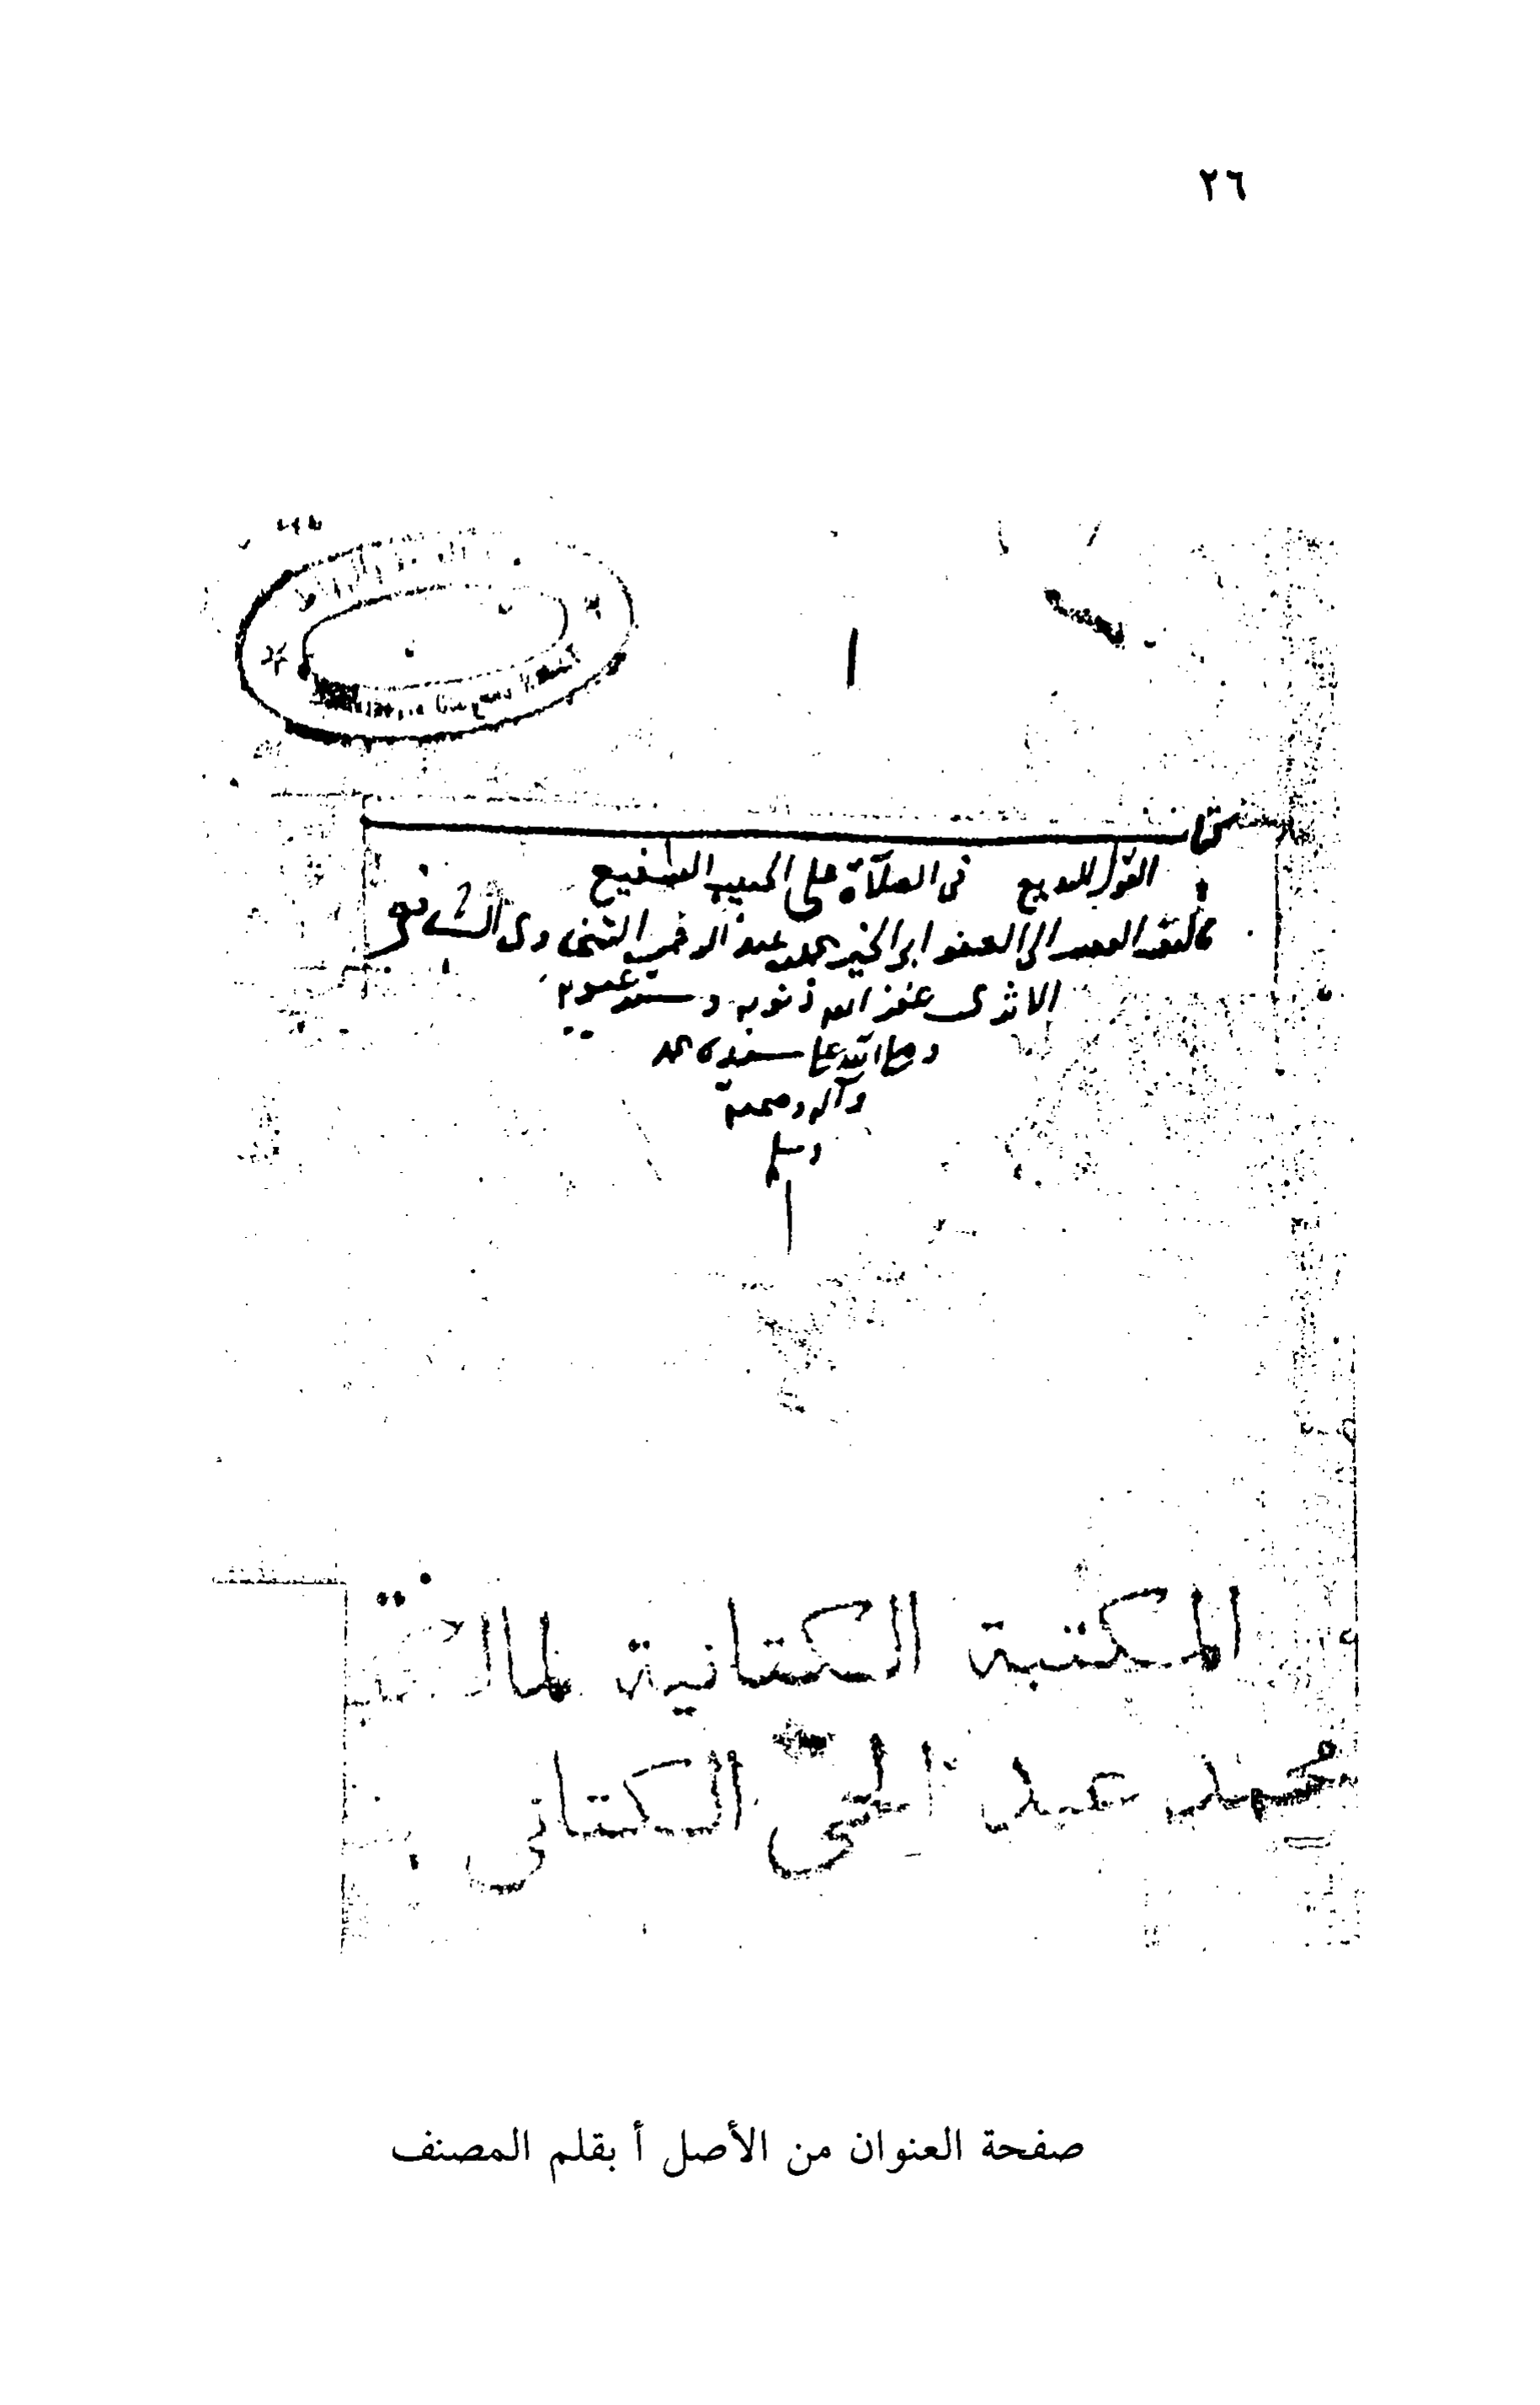 ٢٦
القول البديع في الصلاة على الحبيب الشفيع
تاليف الفقير الى العفو ابي الخير محمد بن عبد الرحمن السخاوي الشافعي
الاثري غفر الله ذنوبه وستر عيوبه
وصلى الله على سيدنا محمد
وآله وصحبه
وسلم
المكتبة الكتانية لمالكها
محمد عبد الحي الكتاني
صفحة العنوان من الأصل أ بقلم المصنف